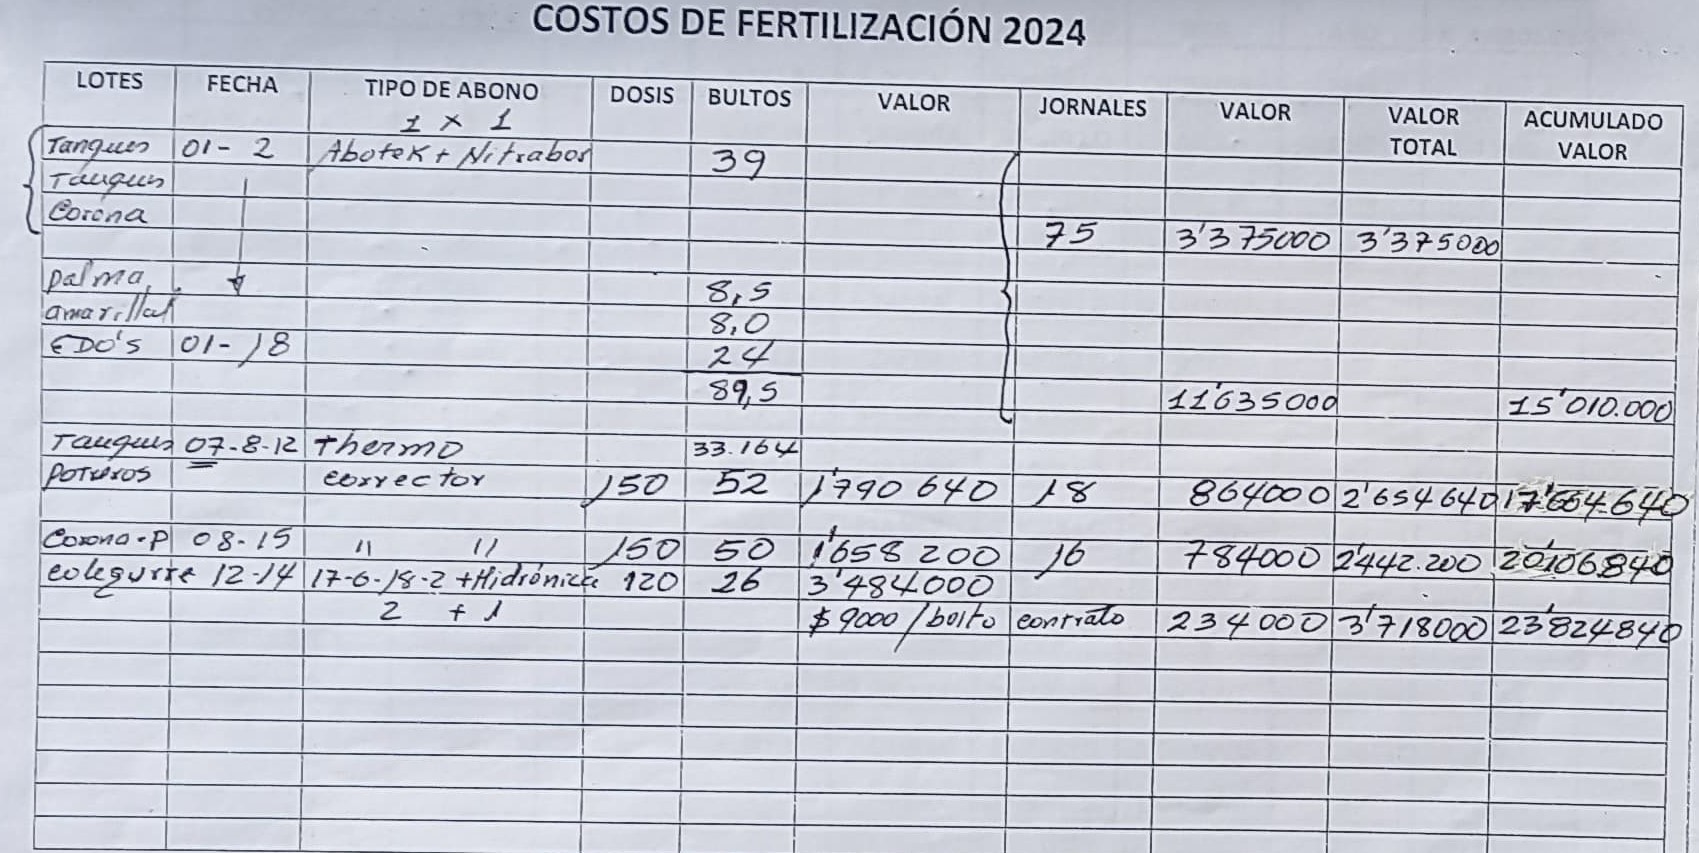 COSTOS DE FERTILIZACIÓN 2024
LOTES FECHA TIPO DE ABONO DOSIS BULTOS VALOR JORNALES VALOR VALOR TOTAL ACUMULADO VALOR
1 x 1
Tanques 01-2 Abotek + Nitrabor 39
Tanques
Corona
75 3'375000 3'375000
palma 8,5
amarillal 8,0
EDO'S 01-18 24
89,5 11'635000 15'010.000
Tanques 07-8-12 thermo 33.164
potreros corrector 150 52 1'790 640 18 864000 2'654640 17'664.640
Corona-P 08-15 " " 150 50 1'658 200 16 784000 2'442.200 20'106840
12-14 17-6-18-2 + Hidrónica 120 26 3'484000
2 + 1 $ 9000 / bolto contrato 234000 3'718000 23'824840